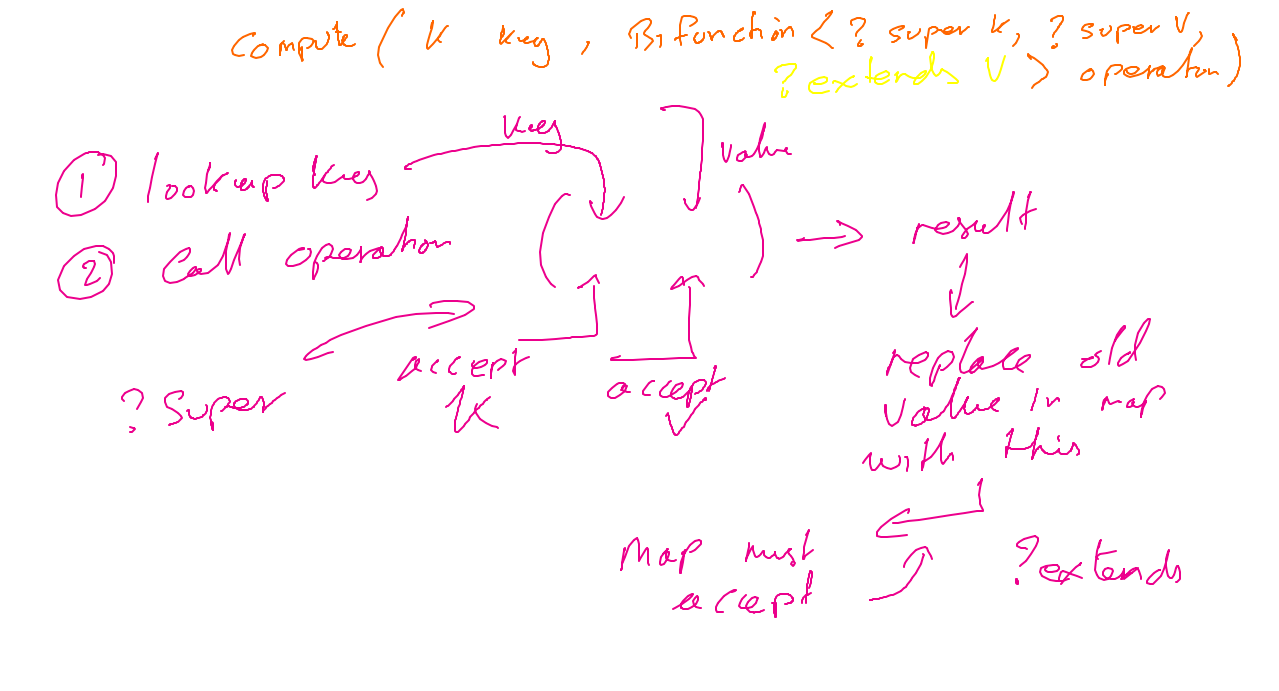 Compute ( K key , Bifunction < ? super K, ? super V,
? extends V > operation )
key
value
① lookup key
② Call operation
( ) → result
accept K
accept V
? Super
replace old
value in map
with this
Map must
accept
? extends